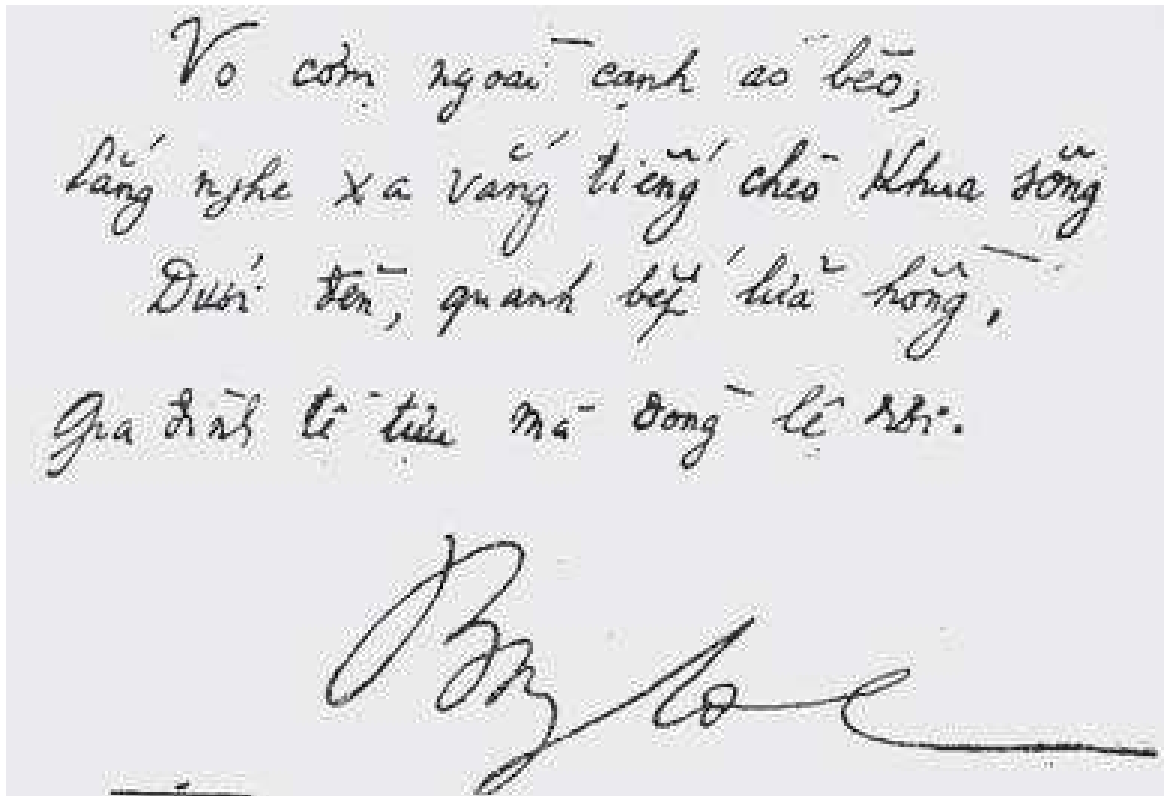 Vo cơm ngoài cạnh ao bèo,
Lắng nghe xa vắng tiếng chèo khua sông
Dưới đèn, quanh bếp lửa hồng,
Gia đình tề tựu mà dòng lệ rơi.